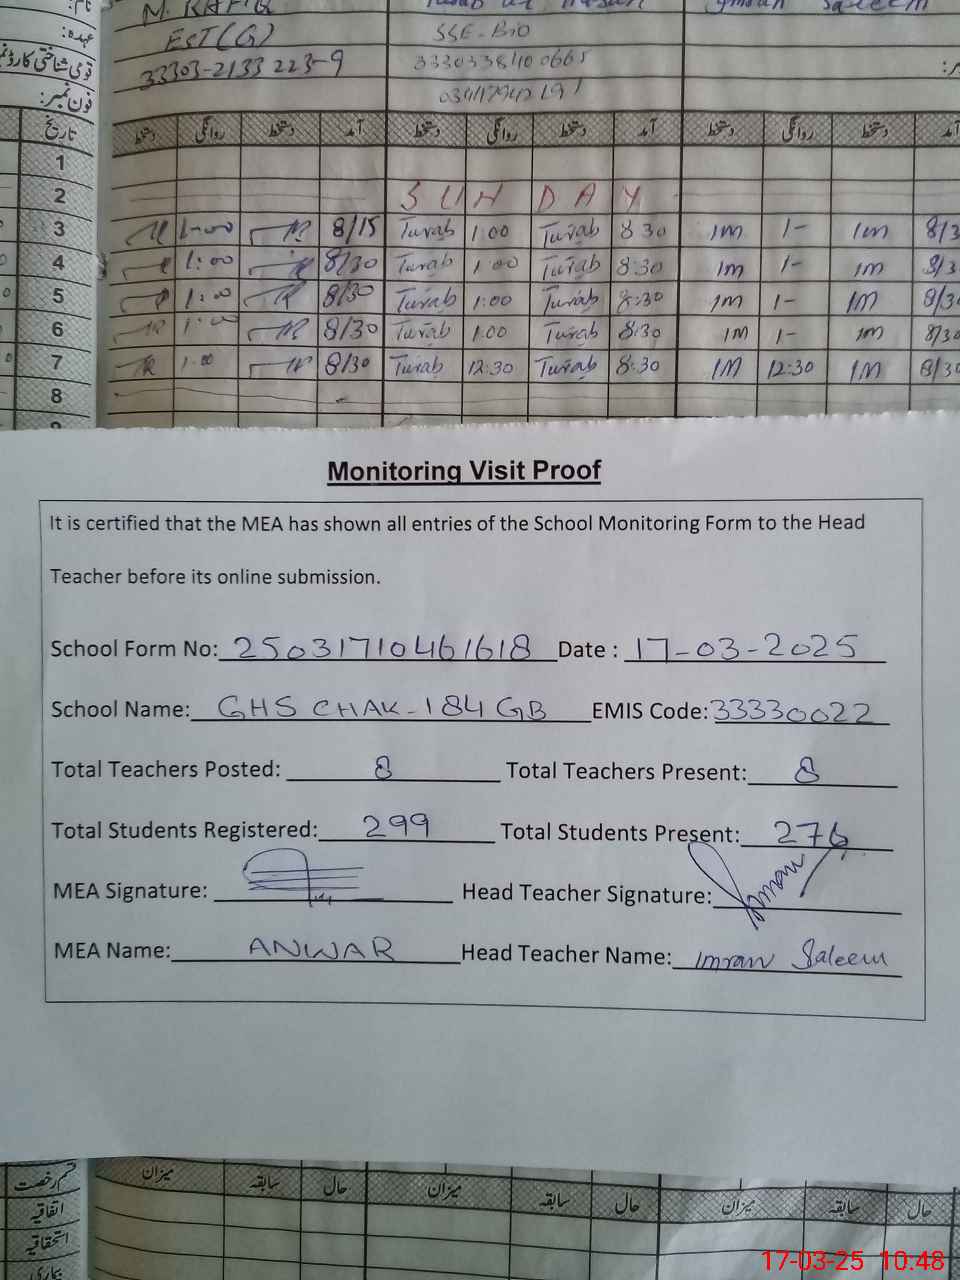 M. RAFIQ
EST(G) SSE-BIO
33303-2133 223-9
نام:
عہدہ:
قومی شناختی کارڈ نمبر
فون نمبر:
تاریخ
دستخط روانگی دستخط آمد دستخط روانگی دستخط آمد دستخط روانگی دستخط آمد
1
2 SUNDAY
3 1-00 8/15 Turab 1:00 Turab 8:30 IM 1- IM
4 1:00 8/30 Turab 1:00 Turab 8:30 IM 1- IM
5 1:00 8/30 Turab 1:00 Turab 8:30 IM 1- IM
6 1:00 8/30 Turab 1:00 Turab 8:30 IM 1- IM
7 1:00 8/30 Turab 12:30 Turab 8:30 IM 12:30 IM
8
Monitoring Visit Proof
It is certified that the MEA has shown all entries of the School Monitoring Form to the Head
Teacher before its online submission.
School Form No: 25031710461618 Date : 17-03-2025
School Name: GHS CHAK-184 GB EMIS Code: 33330022
Total Teachers Posted: 8 Total Teachers Present: 8
Total Students Registered: 299 Total Students Present: 276
MEA Signature: Head Teacher Signature: Imran
MEA Name: ANWAR Head Teacher Name: Imran Saleem
قسم رخصت میزان سابقہ حال میزان سابقہ حال میزان سابقہ حال
اتفاقیہ
استحقاقیہ
بیماری
17-03-25 10:48